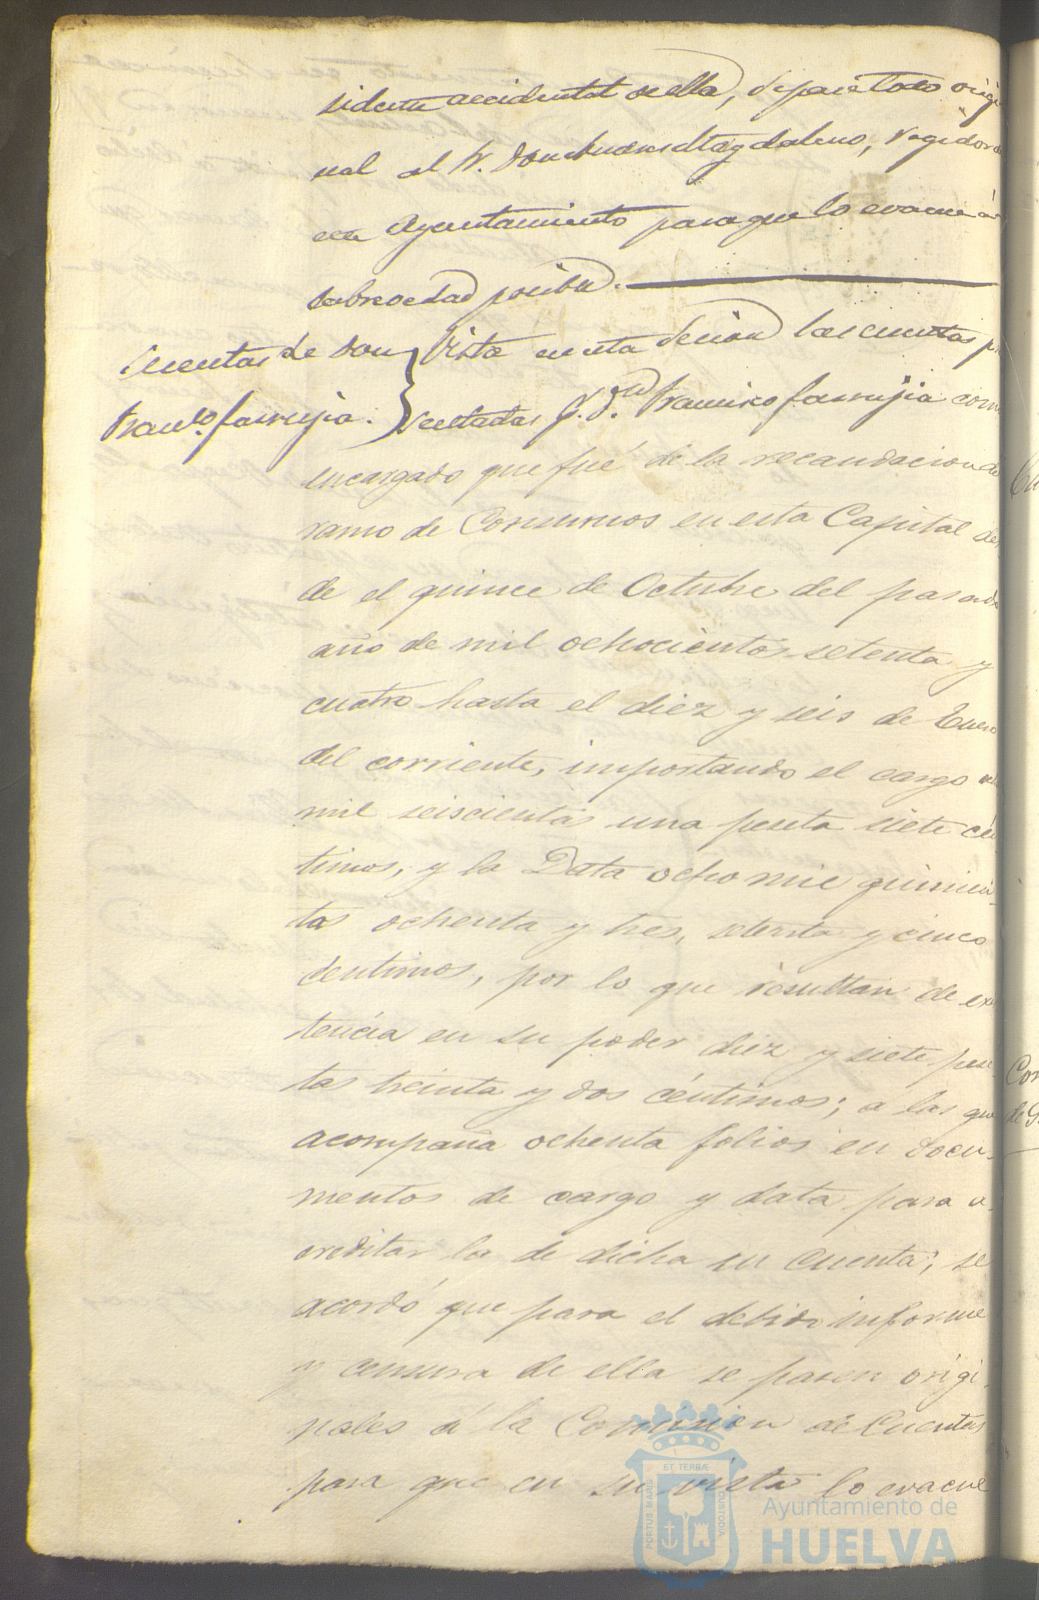 sidente accidental de ella, se pase todo origi
nal al Sr. Don Juan Magdaleno, regidor de
este Ayuntamiento para que lo evacue á
la brevedad posible.
Cuentas de Don
Franco. Farrujia.
Vista en esta Sesion las cuentas pre
sentadas p. Dn. Francisco Farrujia como
encargado que fué de la recaudacion del
ramo de Consumos en esta Capital des
de el quince de Octubre del pasado
año de mil ochocientos setenta y
cuatro hasta el diez y seis de Enero
del corriente, importando el cargo ocho
mil seiscientas una peseta siete cén
timos, y la Data ocho mil quinien
tas ochenta y tres, setenta y cinco
centimos, por lo que resultan de exis
tencia en su poder diez y siete pese
tas treinta y dos céntimos; a las que
acompaña ochenta folios en docu-
mentos de cargo y data para a-
creditar la de dicha su cuenta; se
acordó que para el debido informe
y censura de ella se pasen origi-
nales á la Comision de Cuentas
para que en su vista lo evacue
PORTUS MARIS ET TERRAE CUSTODIA
Ayuntamiento de
HUELVA